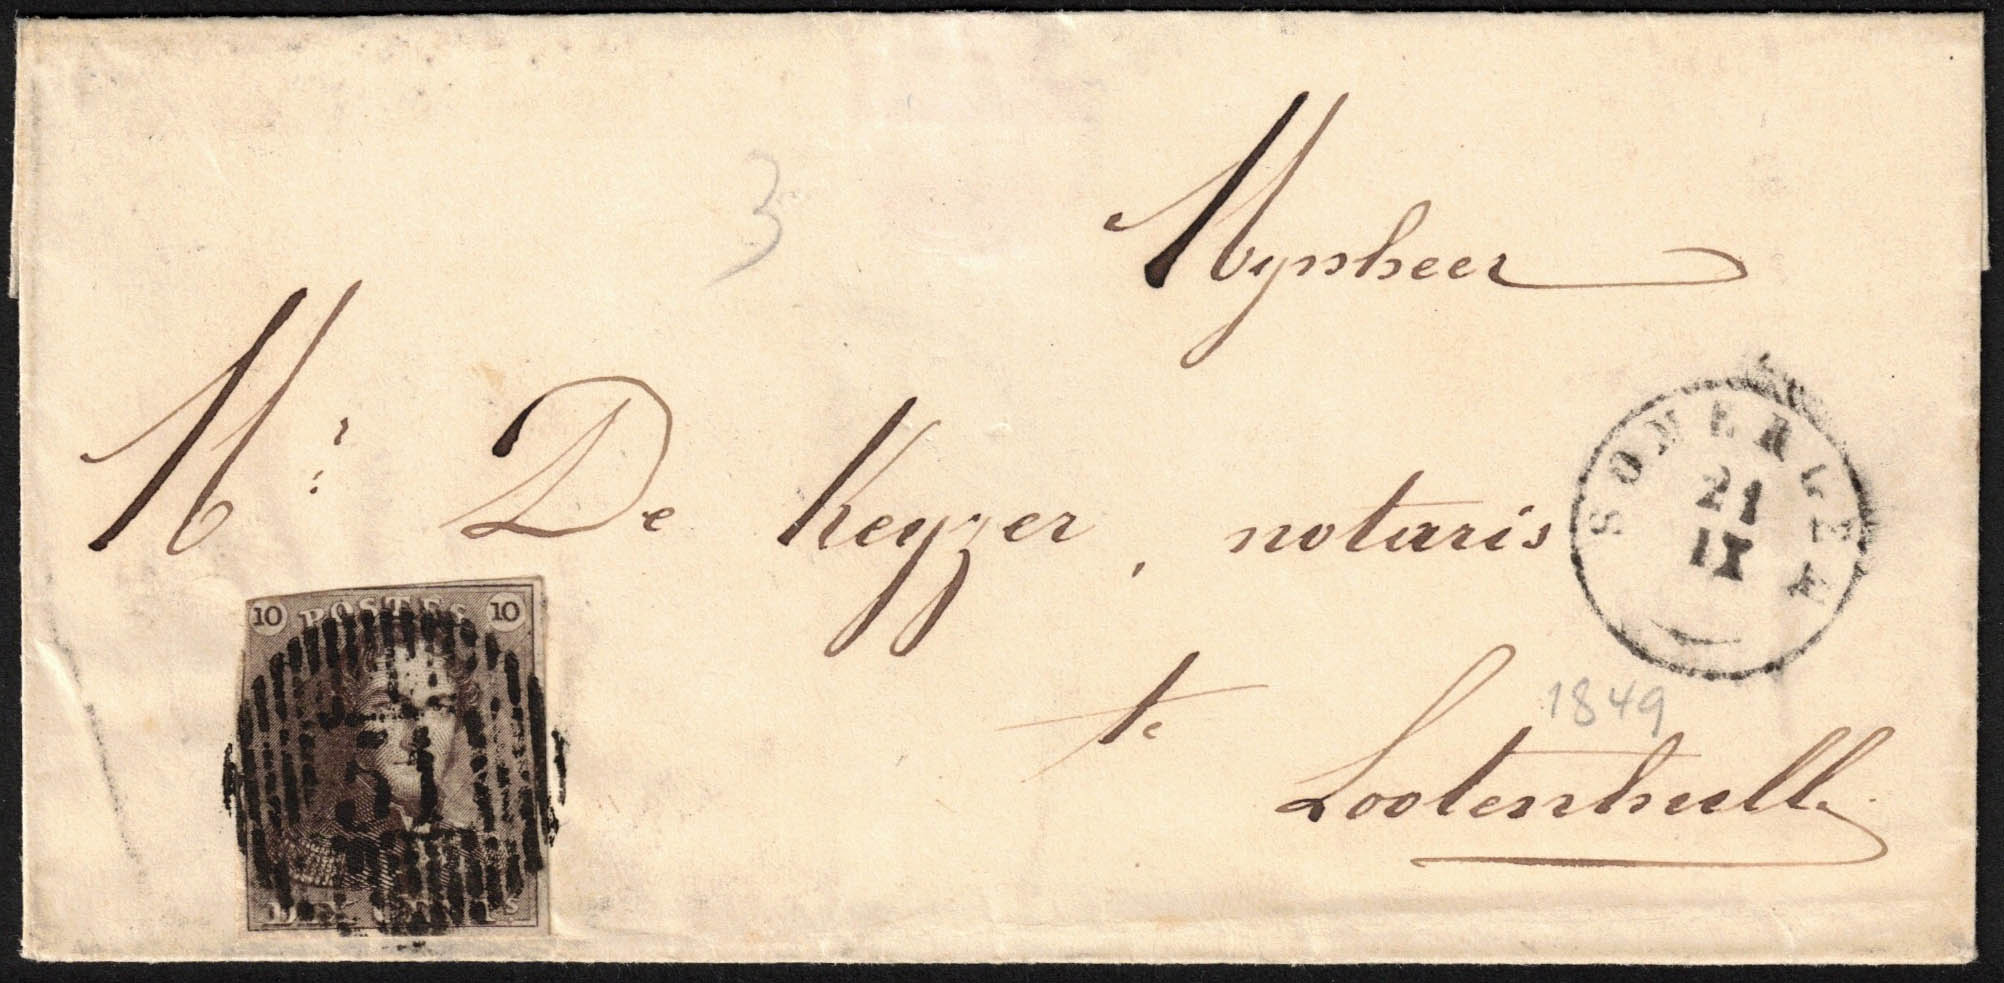 3
Mynheer
Mr. De Keyzer, notaris
te
Lootenhulle
1849
SOMERGEM
21
IX
10 POSTES 10
DIX CENTIMES